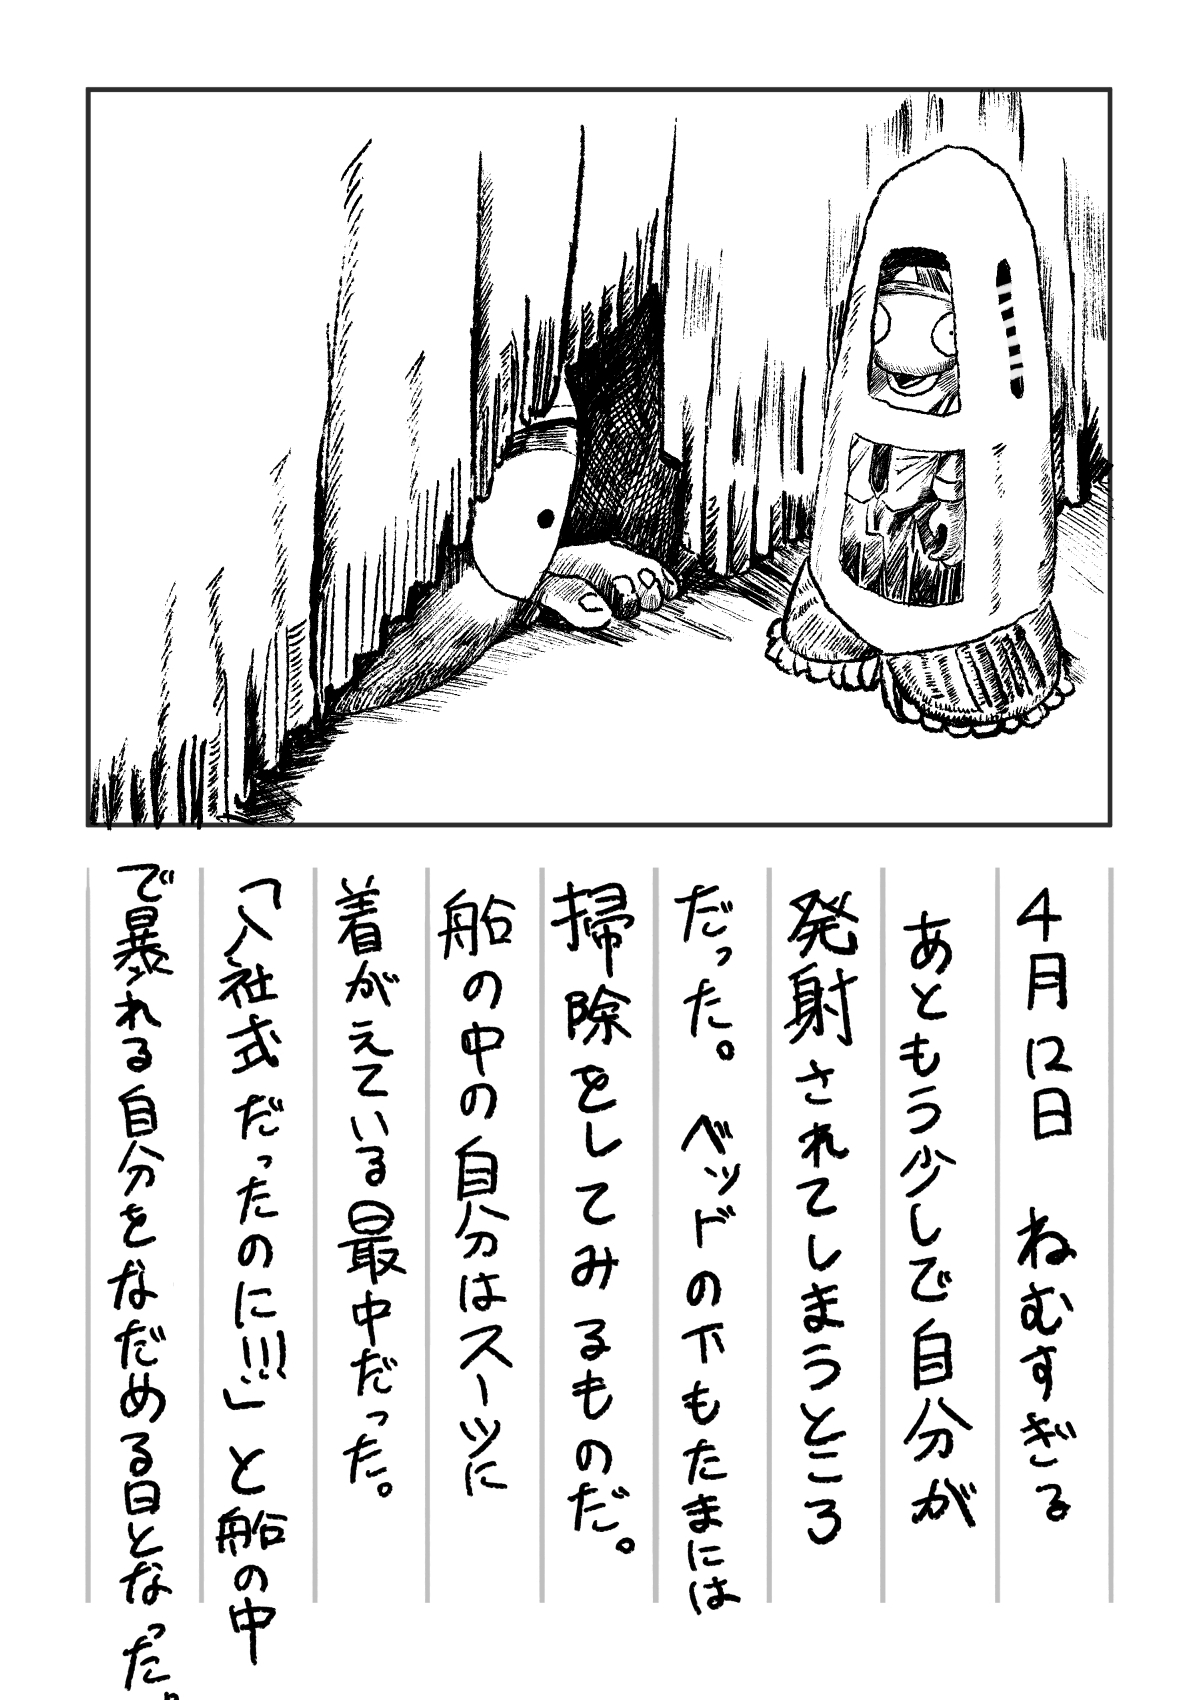 4月12日 ねむすぎる
あともう少しで自分が
発射されてしまうところ
だった。 ベッドの下もたまには
掃除をしてみるものだ。
船の中の自分はスーツに
着がえている最中だった。
「入社式だったのに!!!」と船の中
で暴れる自分をなだめる日となった。